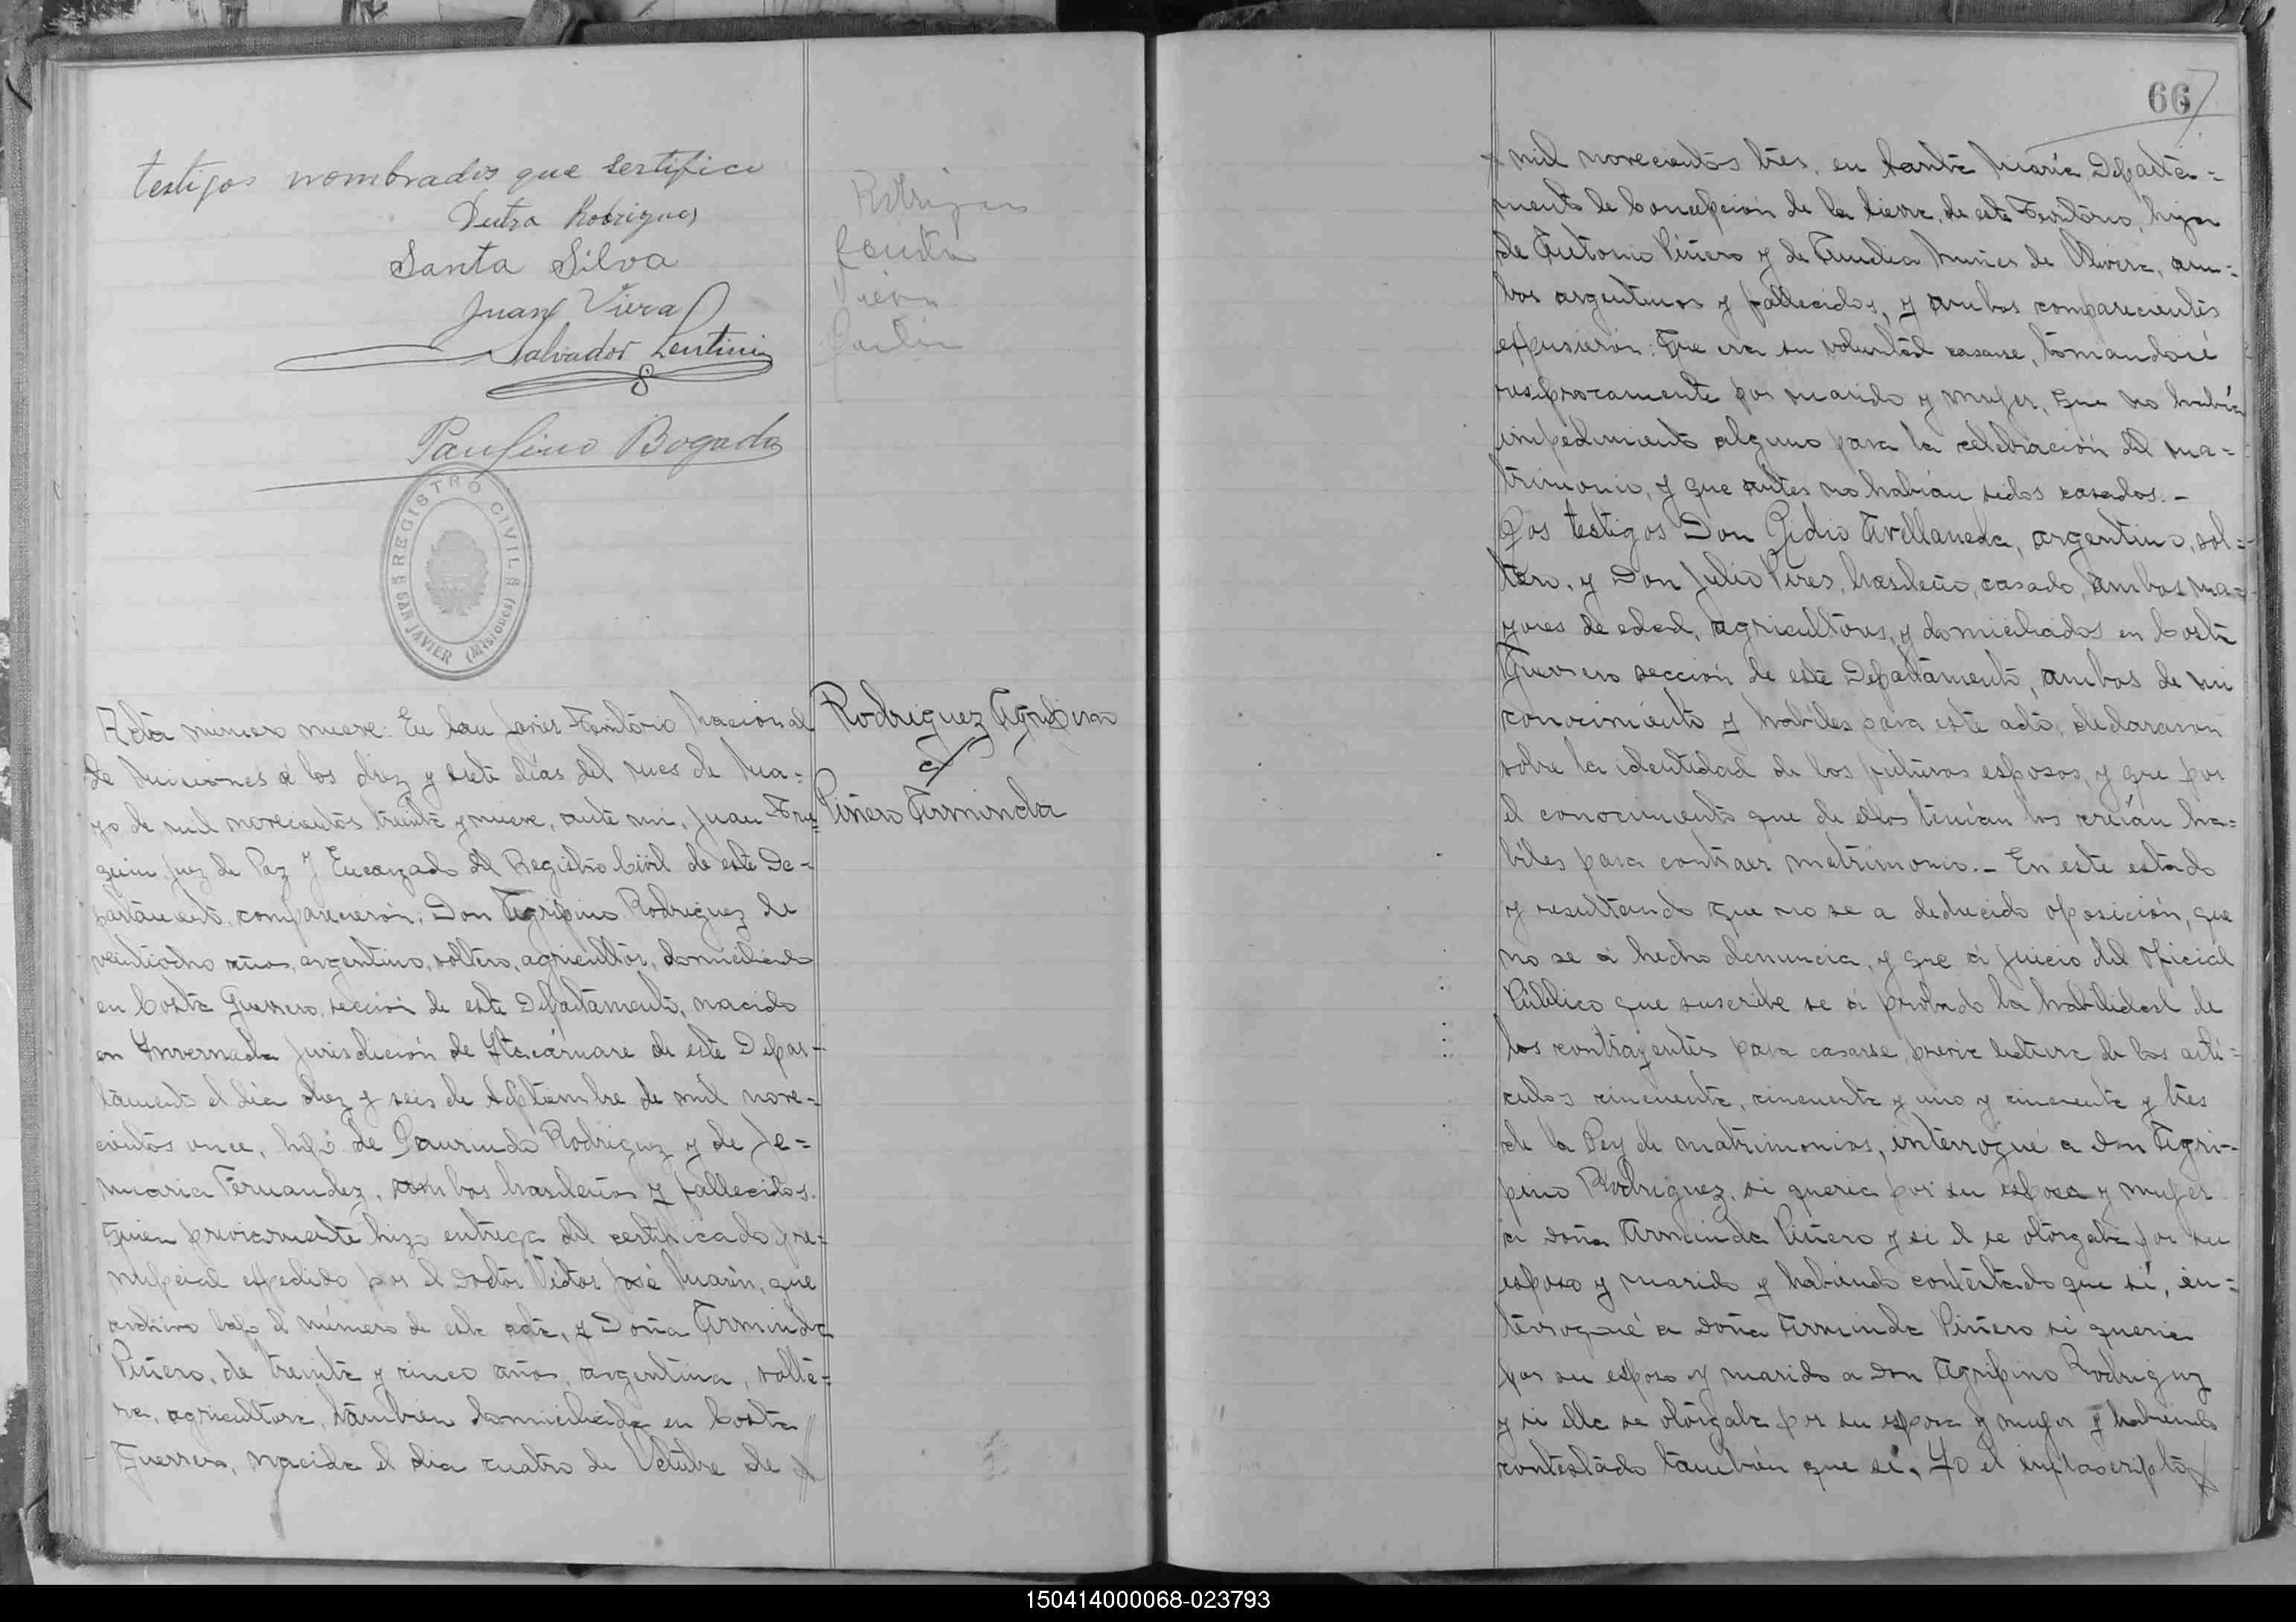 testigos nombrados que sertifico
Dutra Rodrigues
Santa Silva
Juan Viera
Salvador Lentini
Paulino Bogado
REGISTRO CIVIL
SAN JAVIER (Misiones)
Acta número nueve: En San Javier Território Nacional
de Misiones á los diez y siete días del mes de Ma=
yo de mil novecientos treinta y nueve, ante mi, Juan
Juez de Paz y Encargado del Registro Civil de este De-
partamento, comparecieron: Don Agripino Rodriguez de
veintiocho años, argentino, soltero, agricultor, domiciliado
en Costa Guerrero, sección de este Departamento, nacido
en Invernada jurisdición de Itacáruare de este Depar-
tamento el día diez y seis de Septiembre de mil nove-
cientos once, hijo de Laurindo Rodriguez y de Je=
maria Fernandez, ambos brasileños y fallecidos.
Quien previamente hizo entrega del certificado pre=
nupcial espedido por el Doctor Víctor José Marin, que
archivo bajo el número de esta acta, y Doña Arminda
Piñero, de treinta y cinco años, argentina, solte=
ra, agricultora, tambien domiciliada en Costa
Guerrero, nacida el dia cuatro de Octubre de
Rodriguez Agripino
Piñero Arminda
66
mil novecientos tres, en Santa María, Departa=
mento de Concepción de la Sierra, de este Território, hija
de Antonio Piñero y de Nunes de Olivera, am=
bos argentinos y fallecidos, y ambos comparecientes
espusieron: Que era su voluntad casarse, tomandosé
resiprocamente por marido y mujer, que no había
impedimiento alguno para la celebración del ma=
trimonio, y que antes no habían sidos casados.-
Los testigos Don Avellaneda, argentino, sol=
tero, y Don Julio Pires, brasileño, casado, ambos ma=
yores de edad, agricultores, y domiciliados en Costa
Guerrero sección de este Departamento, ambos de mi
conocimiento y habiles para este acto, declararon
sobre la identidad de los futuros esposos, y que por
el conocimiento que de ellos tenían los creían ha=
biles para contraer matrimonio.- En este estado
y resultando que no se a deducido oposición, que
no se á hecho denuncia, y que á juicio del Oficial
Público que suscribe se á probado la habilidad de
los contrayentes para casarse, previa lectura de los artí=
culos cincuenta, cincuenta y uno y cincuenta y tres
de la Ley de matrimonios, interrogué a Don Agri-
pino Rodriguez, si queria por su esposa y mujer
á Doña Arminda Piñero y si el se otorgaba por su
esposo y marido y habiendo contestado que sí, in=
terrogué a Doña Arminda Piñero si queria
por su esposo y marido a Don Agripino Rodriguez
y si ella se otorgaba por su esposa y mujer y habiendo
contestado también que sí, Yo el infrascripto
150414000068-023793